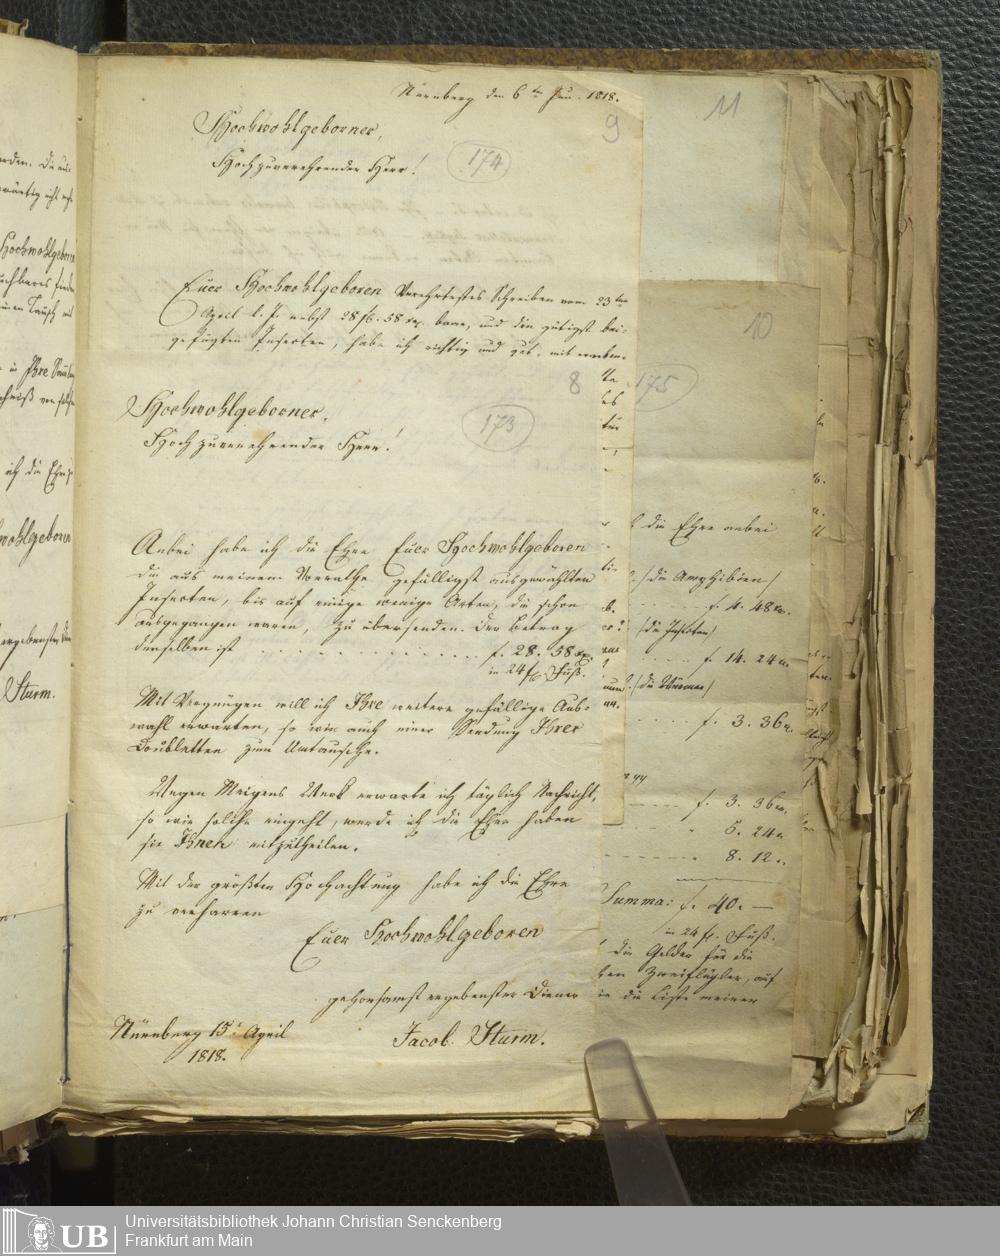 Nürnberg den 6ten Jun. 1818.
9
11
Hochwohlgeborner,
Hochzuverehrender Herr!
174
Euer Hochwohlgeboren Verehrtestes Schreiben vom 23ten
April l. J. nebst 28 fl. 58 xr. baar, und den gütigst bei-
gefügten Insecten, habe ich richtig und gut
10
8
175
Hochwohlgeborner,
Hochzuverehrender Herr!
173
Anbei habe ich die Ehre Euer Hochwohlgeboren
die aus meinem Vorrathe gefälligst ausgewählten
Insecten, bis auf einige wenige Arten, die schon
ausgegangen waren, zu übersenden. Der Betrag
derselben ist . . . . . . . . . . f. 28. 58 xr.
in 24 fl. Fuß.
Mit Vergnügen will ich Ihre weitere gefällige Aus-
wahl erwarten, so wie auch einer Sendung Ihrer
Doubletten zum Umtausche.
Wegen Meigens Werk erwarte ich täglich Nachricht,
so wie solche eingeht, werde ich die Ehre haben
sie Ihnen mitzutheilen.
Mit der größten Hochachtung habe ich die Ehre
zu verharren
Euer Hochwohlgeboren
gehorsamst ergebenster Diener
Jacob Sturm.
Nürnberg 15t April
1818.
die Ehre anbei
/die Amphibien/
f. 4. 48 xr.
/die Insecten/
f. 14. 24 xr.
/die Würmer/
f. 3. 36 xr.
f. 3. 36 xr.
" 5. 24 xr.
" 8. 12 "
Summa: f. 40. —
in 24 fl. Fuß.
die Gelder für die
Zweiflügler, auf
die Liste meiner
Hochwohlgeboren
ich die Ehre
Sturm.
UB
Universitätsbibliothek Johann Christian Senckenberg
Frankfurt am Main